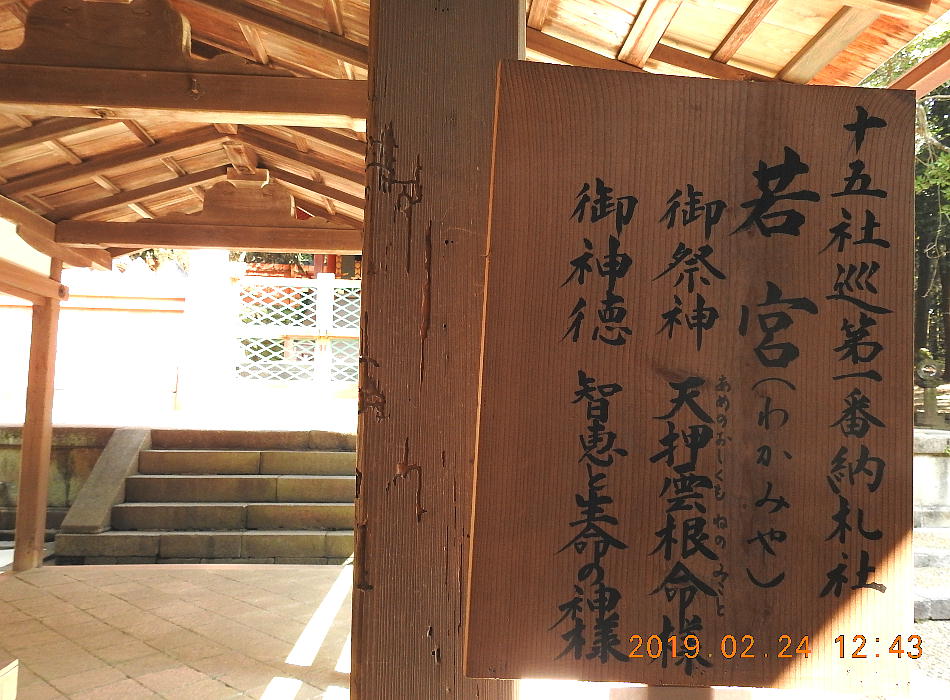 十五社巡第一番納札社
若宮(わかみや)
御祭神 天押雲根命様
あめのおしくもねのみこと
御神徳 智恵と生命の神様
2019.02.24 12:43